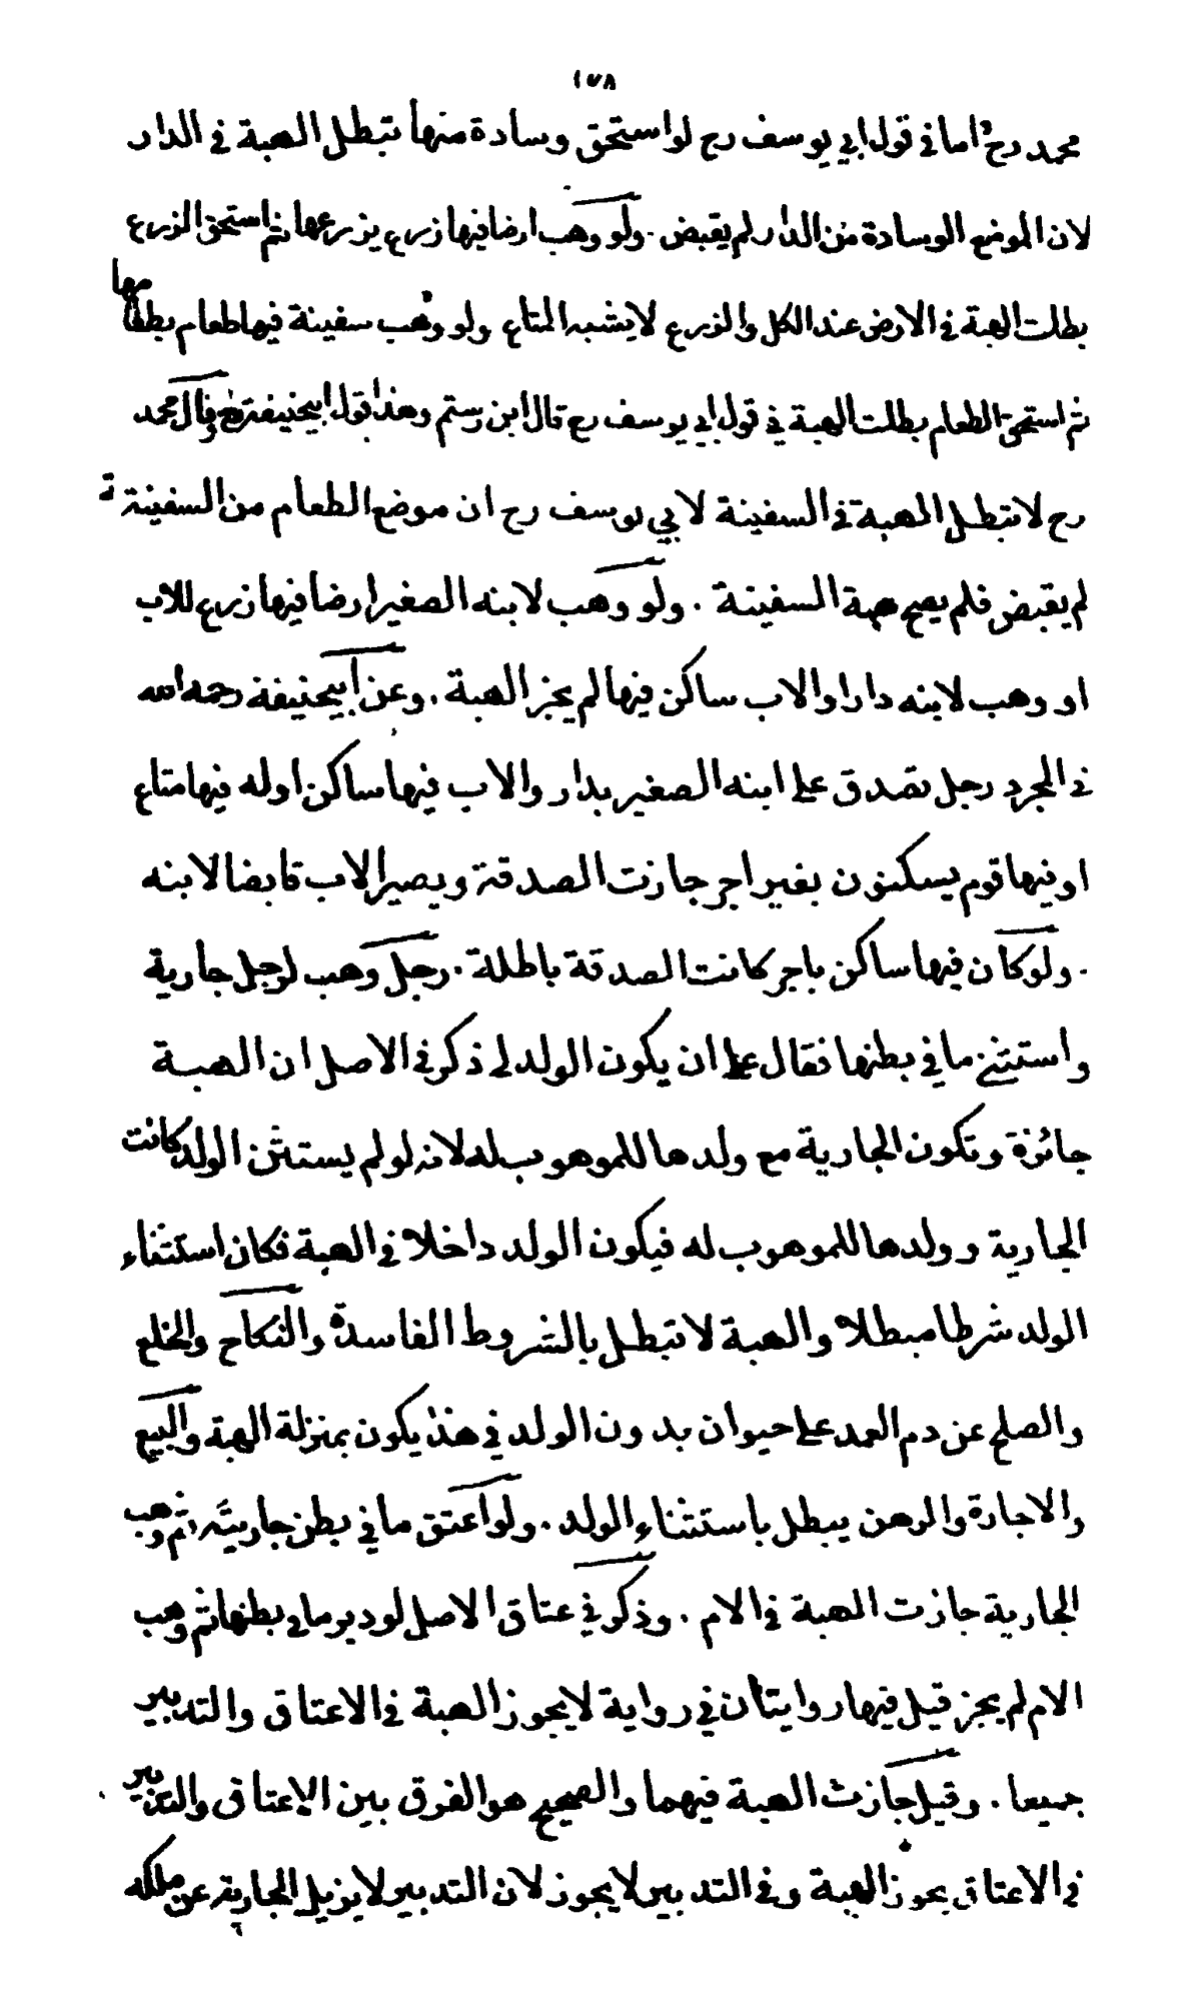 ١٧٨
محمد رح اما في قول ابي يوسف رح لو استحق وسادة منها تبطل الهبة في الدار
لان الموضع الوسادة من الدار لم يقبض . ولو وهب ارضا فيها زرع يزرعها ثم استحق الزرع
بطلت الهبة في الارض عند الكل والزرع لا يشبه المتاع ولو وهب سفينة فيها طعام بطعامها
ثم استحق الطعام بطلت الهبة في قول ابي يوسف رح قال ابن رستم وهذا قول ابيحنيفة رح وقال محمد
رح لا تبطل الهبة في السفينة لابي يوسف رح ان موضع الطعام من السفينة
لم يقبض فلم يصح هبة السفينة . ولو وهب لابنه الصغير ارضا فيها زرع للاب
او وهب لابنه دارا والاب ساكن فيها لم يجز الهبة . وعن ابيحنيفة رحمه الله
في المجرد رجل تصدق على ابنه الصغير بدار والاب فيها ساكن او له فيها متاع
او فيها قوم يسكنون بغير اجر جازت الصدقة ويصير الاب قابضا لابنه
. ولو كان فيها ساكن باجر كانت الصدقة باطلة . رجل وهب لرجل جارية
واستثنى ما في بطنها فقال على ان يكون الولد لي ذكر في الاصل ان الهبة
جائزة وتكون الجارية مع ولدها للموهوب له لانه لو لم يستثن الولد كانت
الجارية وولدها للموهوب له فيكون الولد داخلا في الهبة فكان استثناء
الولد شرطا مبطلا والهبة لا تبطل بالشروط الفاسدة والنكاح والخلع
والصلح عن دم العمد على حيوان بدون الولد في هذا يكون بمنزلة الهبة والبيع
والاجارة والرهن يبطل باستثناء الولد . ولو اعتق ما في بطن جاريته ثم وهب
الجارية جازت الهبة في الام . وذكر في عتاق الاصل لو دبر ما في بطنها ثم وهب
الام لم يجز قيل فيها روايتان في رواية لا يجوز الهبة في الاعتاق والتدبير
جميعا . وقيل جازت الهبة فيهما والصحيح هو الفرق بين الاعتاق والتدبير
في الاعتاق يجوز الهبة وفي التدبير لا يجوز لان التدبير لا يزيل الجارية عن ملكه